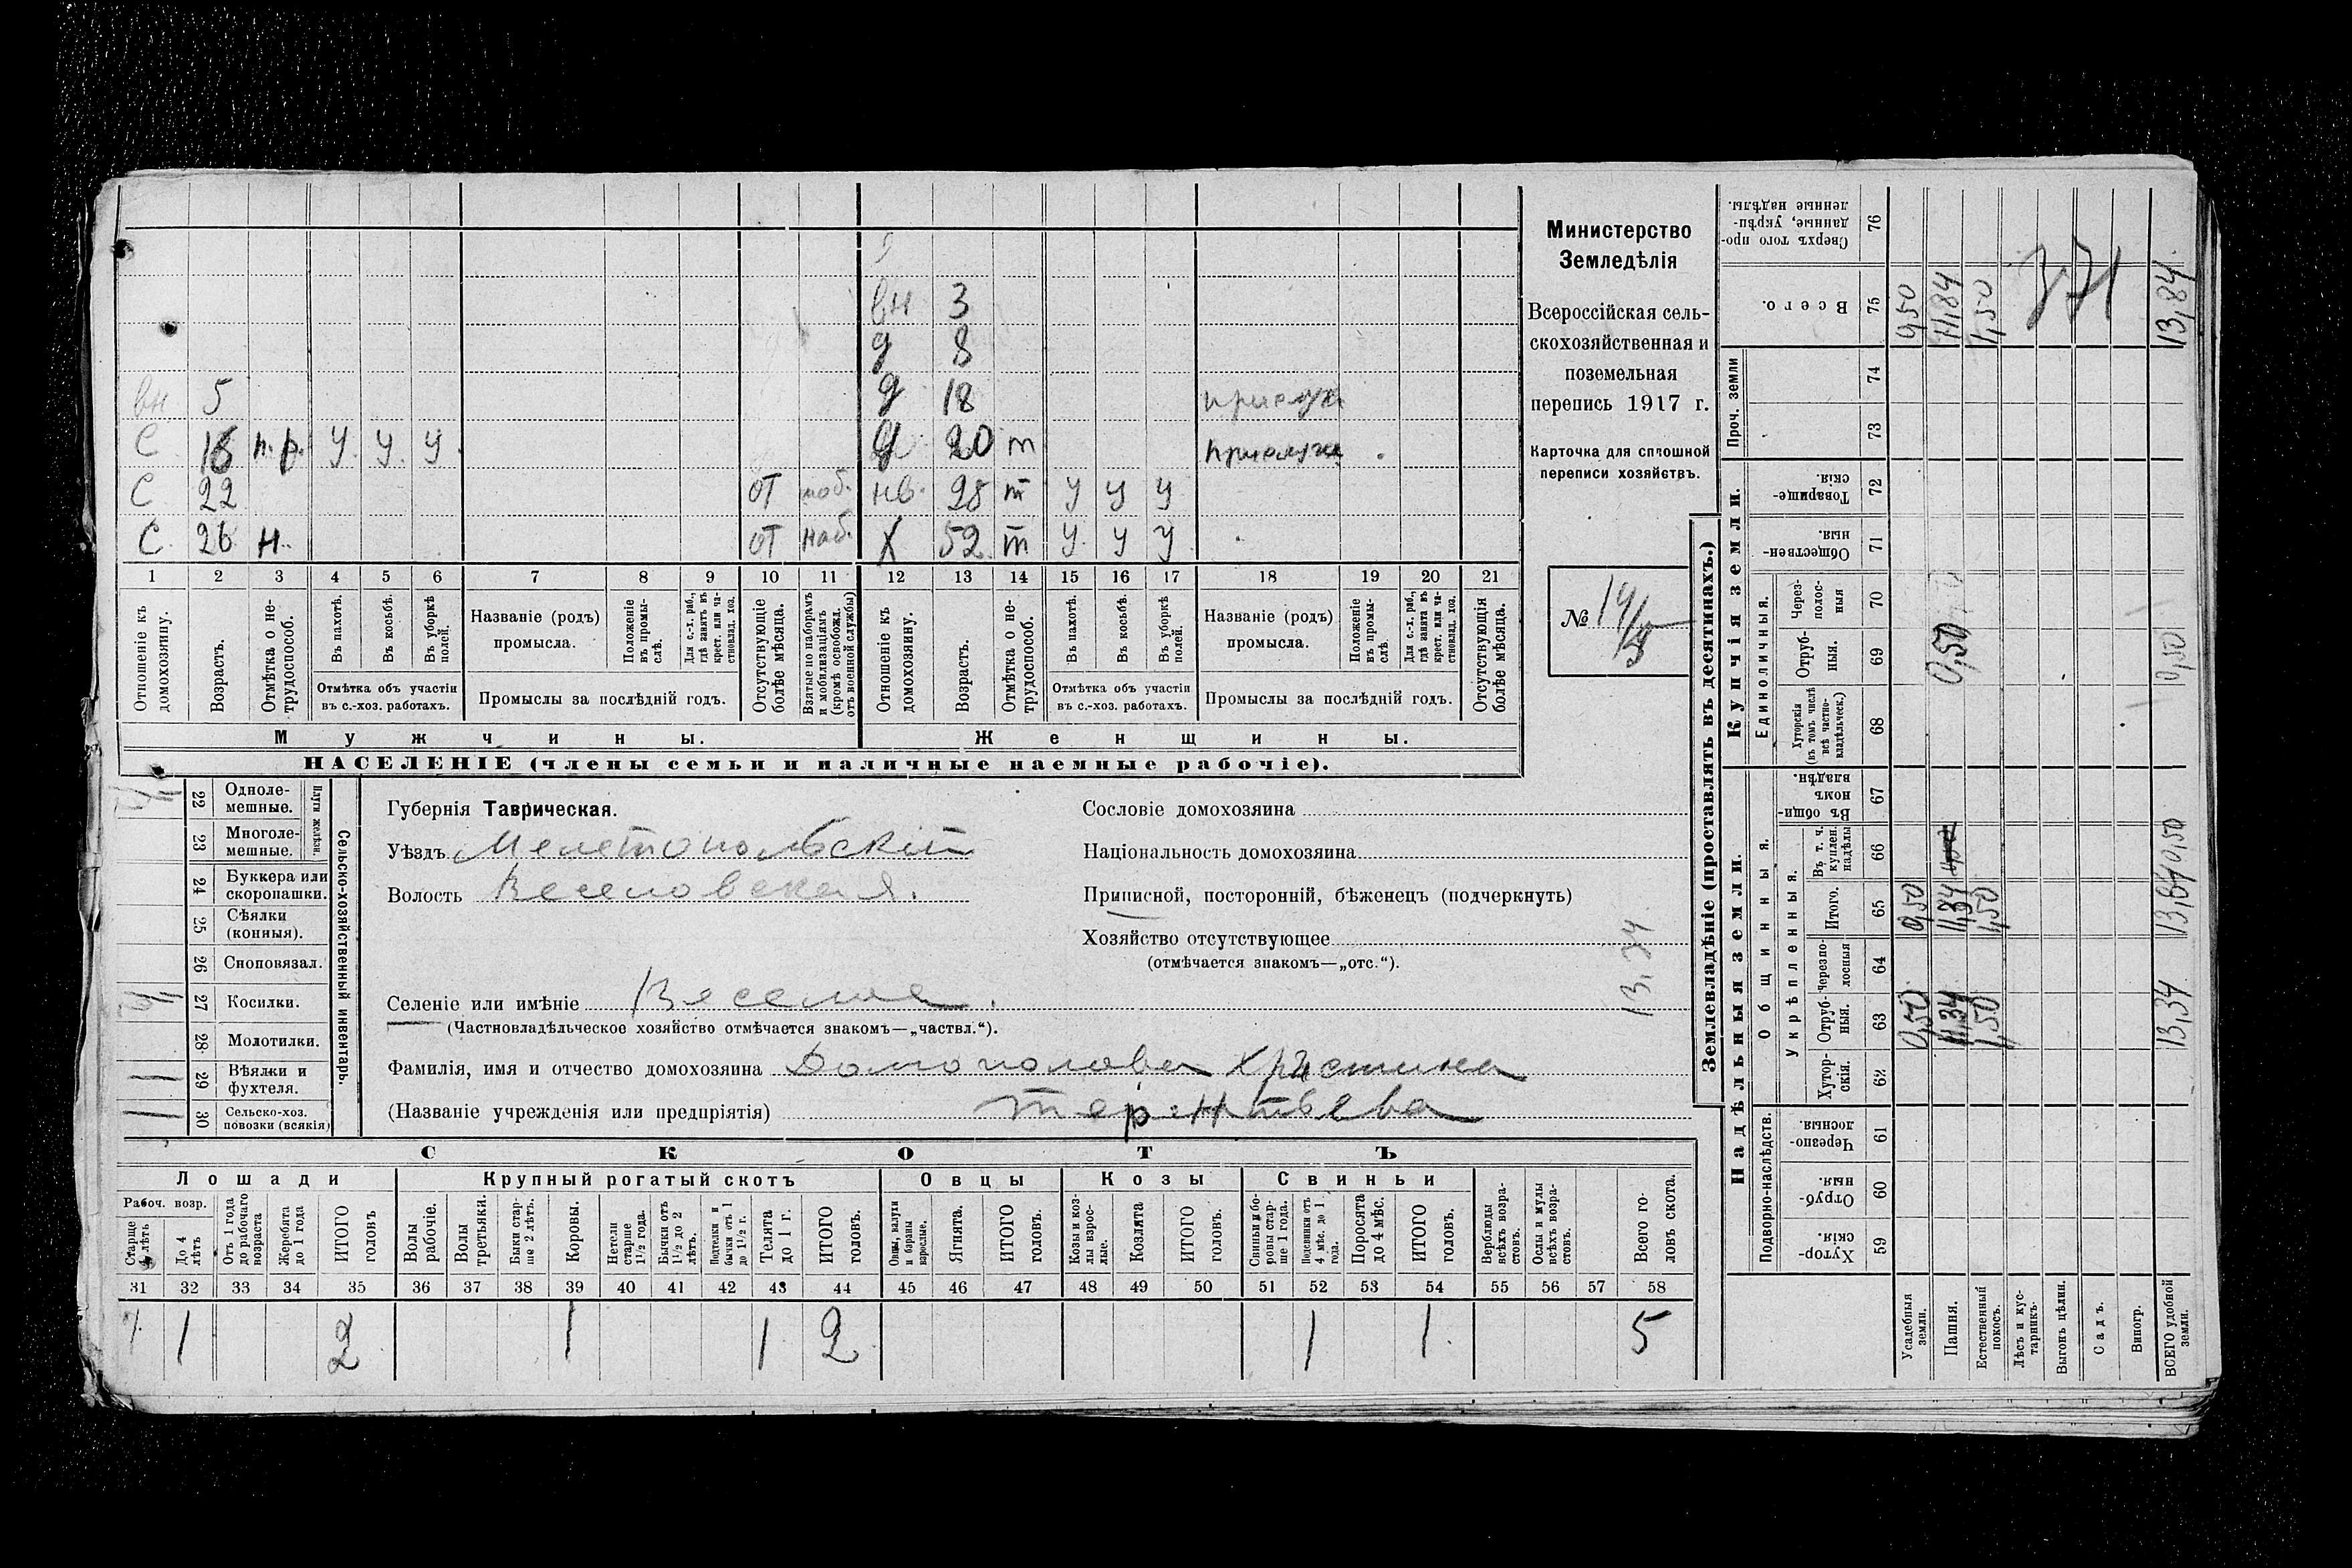 вн 3
д 8
вн 5 д 18
С 16 н.р. у у у д 20 т прислуга
С 22 от моб. нв. 28 т у у у
С 26 н. от наб. Х 52 т у у у
1 2 3 4 5 6 7 8 9 10 11 12 13 14 15 16 17 18 19 20 21
Отношеніе къ домохозяину.
Возрастъ.
Отмѣтка о нетрудоспособ.
Въ пахотѣ.
Въ косьбѣ.
Въ уборкѣ полей.
Отмѣтка объ участіи
въ с.-хоз. работахъ.
Названіе (родъ)
промысла.
Положеніе въ промыслѣ.
Для с.-х. раб., гдѣ занятъ въ крест. или частновлад. хоз.
Промыслы за послѣдній годъ.
Отсутствующіе болѣе мѣсяца.
Взятые по наборамъ и мобилизаціямъ (кромѣ освобожд. отъ военной службы)
Отношеніе къ домохозяину.
Возрастъ.
Отмѣтка о нетрудоспособ.
Въ пахотѣ.
Въ косьбѣ.
Въ уборкѣ полей.
Отмѣтка объ участіи
въ с.-хоз. работахъ.
Названіе (родъ)
промысла.
Положеніе въ промыслѣ.
Для с.-х. раб., гдѣ занята въ крест. или частновлад. хоз.
Промыслы за послѣдній годъ.
Отсутствующія болѣе мѣсяца.
Мужчины. Женщины.
НАСЕЛЕНІЕ (члены семьи и наличные наемные рабочіе).
Министерство
Земледѣлія
Всероссійская сель-
скохозяйственная и
поземельная
перепись 1917 г.
Карточка для сплошной
переписи хозяйствъ.
№
Сельско-хозяйственный инвентарь.
Плуги желѣзн.
22 Одноле-
мешные.
23 Многоле-
мешные.
24 Буккера или
скоропашки.
25 Сѣялки
(конныя).
26 Сноповязал.
27 Косилки.
28 Молотилки.
1 29 Вѣялки и
фухтеля.
1 30 Сельско-хоз.
повозки (всякія)
Губернія Таврическая.
Уѣздъ Мелетопольскій
Волость Веселовская.
Селеніе или имѣніе Веселое.
(Частновладѣльческое хозяйство отмѣчается знакомъ—„частвл.“).
Фамилія, имя и отчество домохозяина Домополова Христина
(Названіе учрежденія или предпріятія) Терентьева
Сословіе домохозяина
Національность домохозяина
Приписной, посторонній, бѣженецъ (подчеркнуть)
Хозяйство отсутствующее
(отмѣчается знакомъ—„отс.“).
13,34
СКОТЪ
Лошади Крупный рогатый скотъ Овцы Козы Свиньи
Рабоч. возр.
Старше 4 лѣтъ
До 4 лѣтъ
Отъ 1 года до рабочаго возраста
Жеребята до 1 года
ИТОГО головъ
Волы рабочіе.
Волы третьяки.
Быки старше 2 лѣтъ.
Коровы.
Нетели старше 1½ года.
Бычки отъ 1½ до 2 лѣтъ.
Подтелки и бычки отъ 1 до 1½ г.
Телята до 1 г.
ИТОГО головъ.
Овцы, валухи и бараны взрослые.
Ягнята.
ИТОГО головъ.
Козы и козлы взрослые.
Козлята
ИТОГО головъ.
Свиньи и боровы старше 1 года.
Подсвинки отъ 4 мѣс. до 1 года.
Поросята до 4 мѣс.
ИТОГО головъ.
Верблюды всѣхъ возрастовъ.
Ослы и мулы всѣхъ возрастовъ.
Всего головъ скота.
31 32 33 34 35 36 37 38 39 40 41 42 43 44 45 46 47 48 49 50 51 52 53 54 55 56 57 58
1 1 2 1 1 2 1 1 5
Землевладѣніе (проставлять въ десятинахъ.)
Надѣльныя земли. Купчія земли. Проч. земли
Подворно-наслѣдств.
Общинныя.
Укрѣпленныя.
Единоличныя.
Хуторскія. 59
Отрубныя. 60
Черезполосныя 61
Хуторскія. 62
Отрубныя. 63
Черезполосныя 64
Итого. 65
Въ т. ч. куплен. надѣлы 66
Въ общинномъ владѣн. 67
Хуторскія (въ томъ числѣ всѣ частновладѣльческ.) 68
Отрубныя. 69
Черезполосныя 70
Общественныя. 71
Товарищескія. 72
73
74
Всего. 75
Сверхъ того проданные, укрѣпленные надѣлы. 76
Усадебныя земли. 0,50 0,50 0,50
Пашня. 11,34 11,34 0,50 11,84
Естественный покосъ. 1,50 1,50 1,50
Лѣсъ и кустарникъ.
Выгонъ цѣлин.
Садъ.
Виногр.
371
ВСЕГО удобной земли. 13,34 13,84 0,50 0,50 13,84